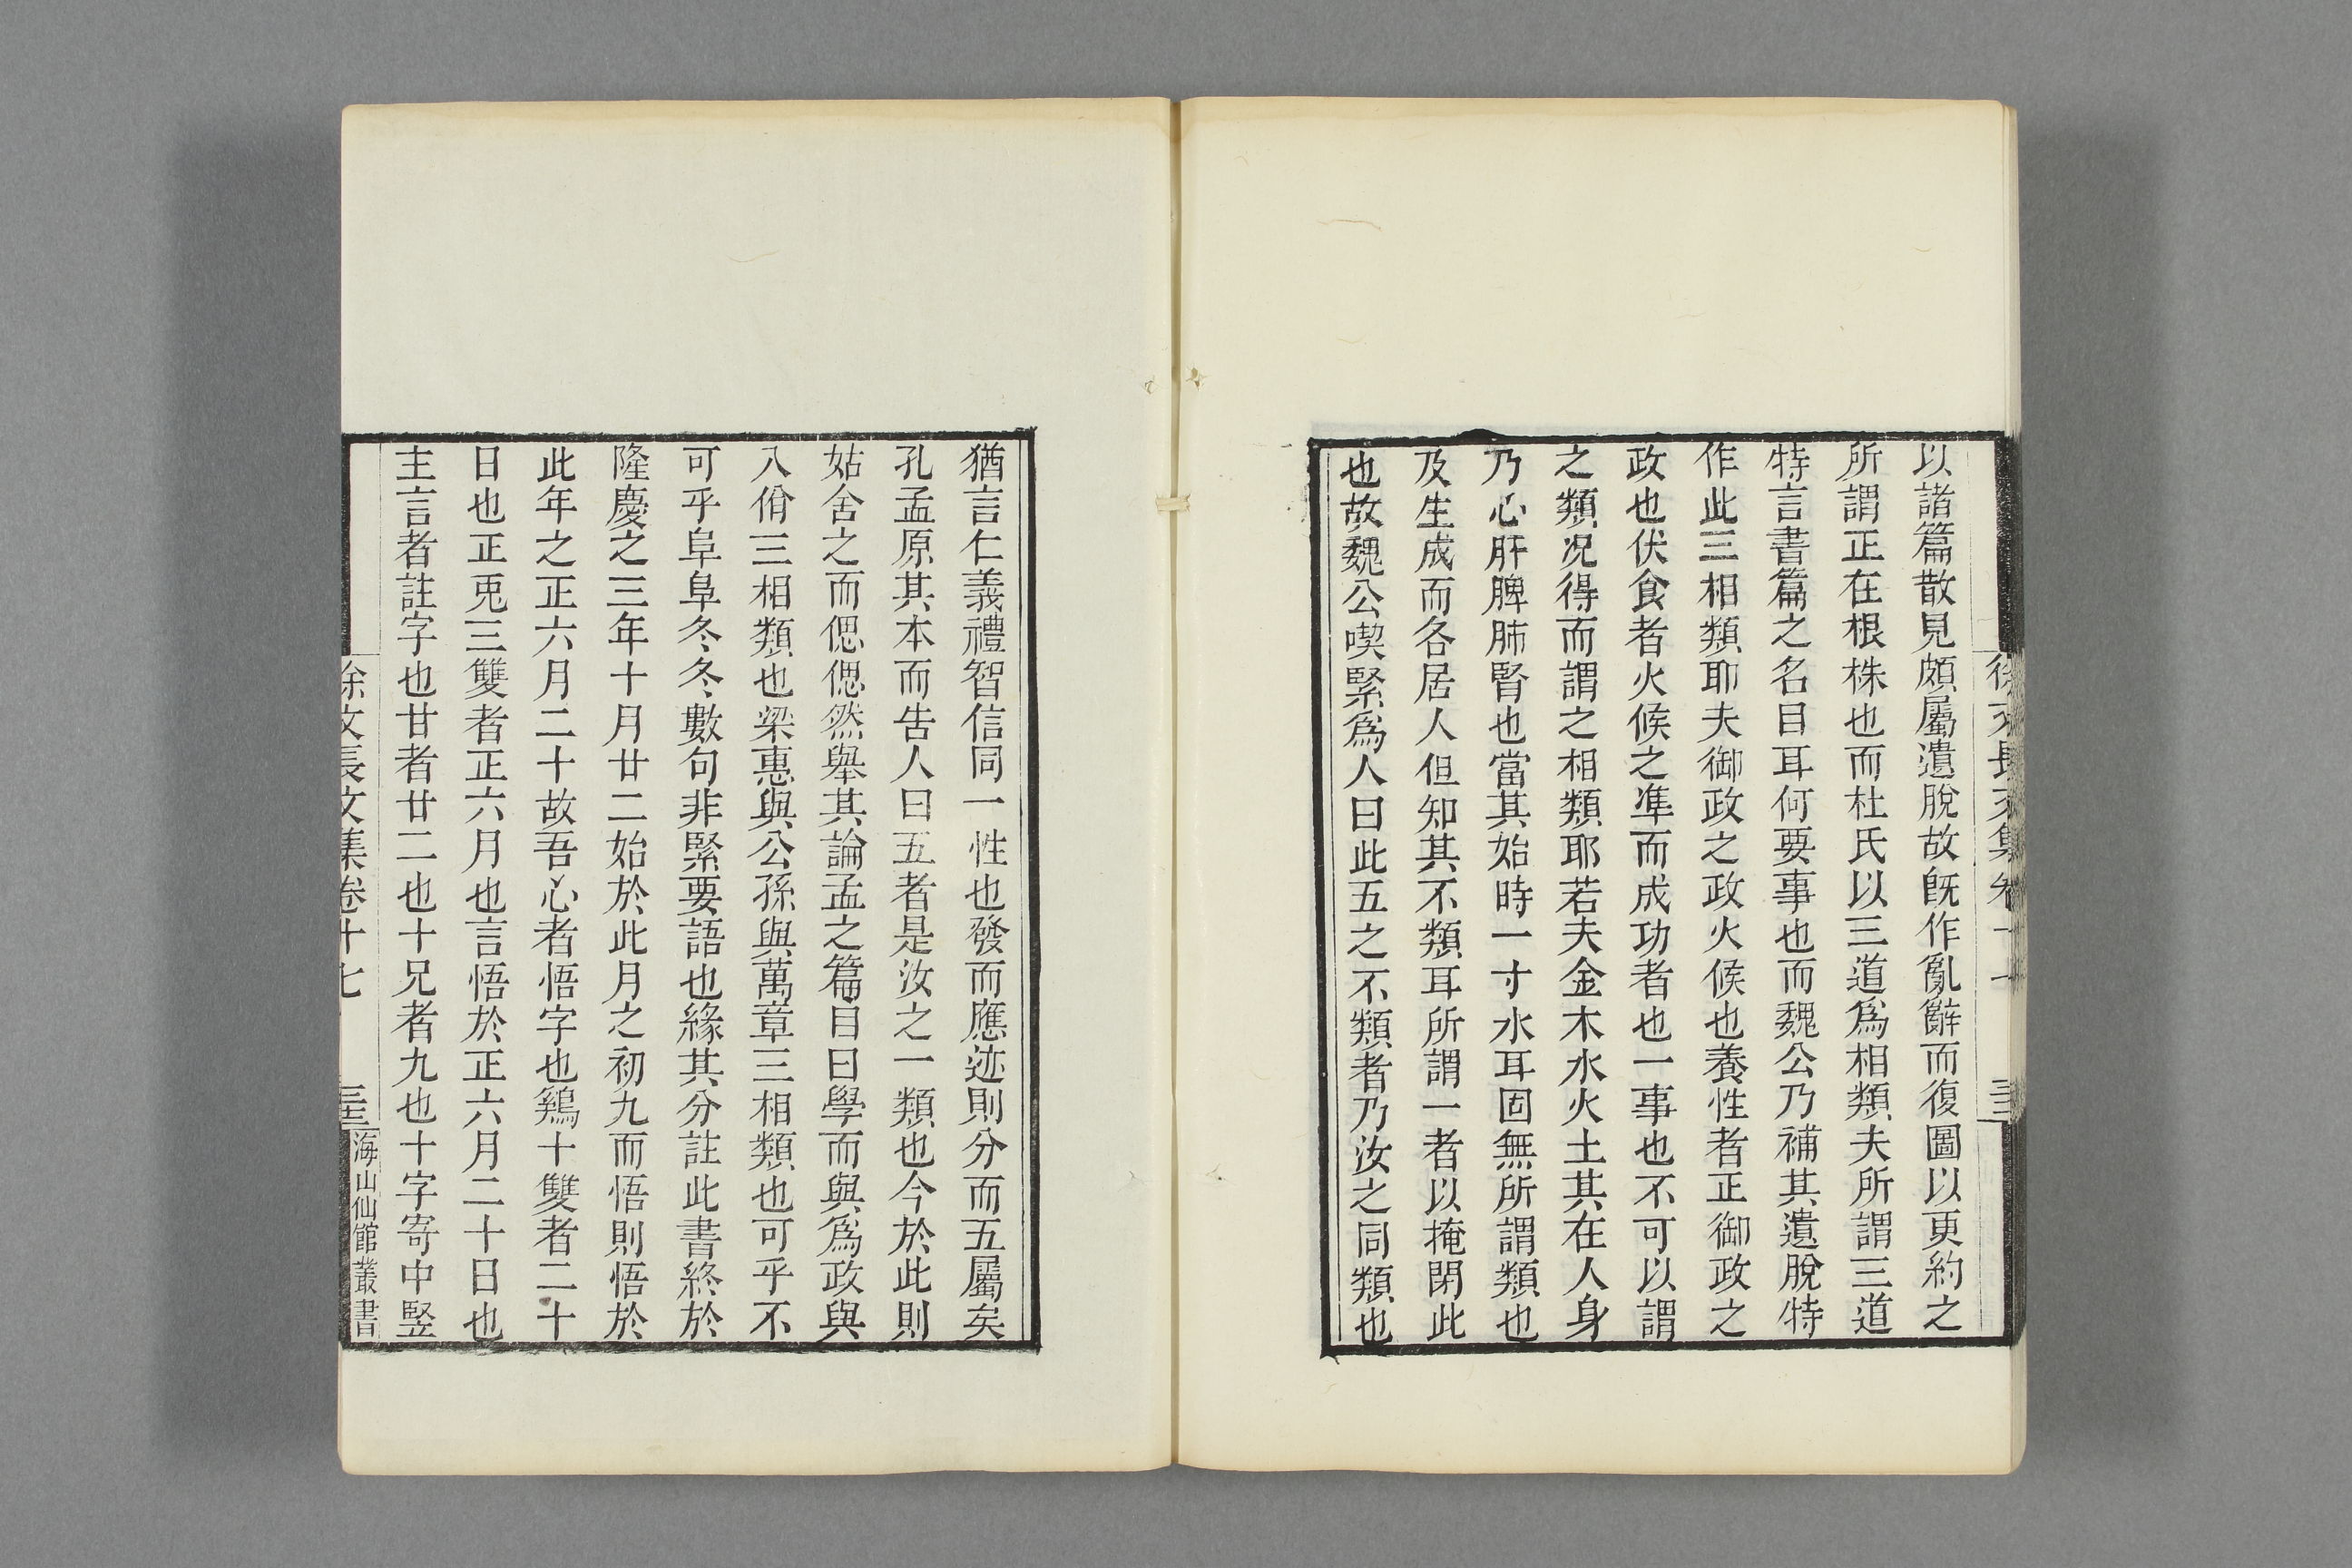 以諸篇散見頗屬遺脫故旣作亂辭而復圖以更約之
所謂正在根株也而杜氏以三道爲相類夫所謂三道
特言書篇之名目耳何要事也而魏公乃補其遺脫特
作此三相類耶夫御政之政火候也養性者正御政之
政也伏食者火候之準而成功者也一事也不可以謂
之類况得而謂之相類耶若夫金木水火土其在人身
乃心肝脾肺腎也當其始時一寸水耳固無所謂類也
及生成而各居人但知其不類耳所謂一者以掩閉此
也故魏公喫緊爲人曰此五之不類者乃汝之同類也
猶言仁義禮智信同一性也發而應迹則分而五屬矣
孔孟原其本而告人曰五者是汝之一類也今於此則
姑舍之而偲偲然舉其論孟之篇目曰學而與爲政與
八佾三相類也梁惠與公孫與萬章三相類也可乎不
可乎阜阜冬冬數句非緊要語也緣其分註此書終於
隆慶之三年十月廿二始於此月之初九而悟則悟於
此年之正六月二十故吾心者悟字也鷄十雙者二十
日也正兎三雙者正六月也言悟於正六月二十日也
主言者註字也廿者廿二也十兄者九也十字寄中竪
徐文長文集卷十七
海山仙館叢書